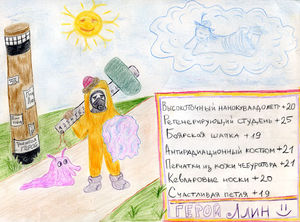 Высокоточный нанокувалдометр +20
Регенерирующий студень +25
Боярская шапка +19
Антирадиационный костюм +21
Перчатки из кожи чебуратора +21
Кевларовые носки +20
Счастливая петля +19
Герой Ллин